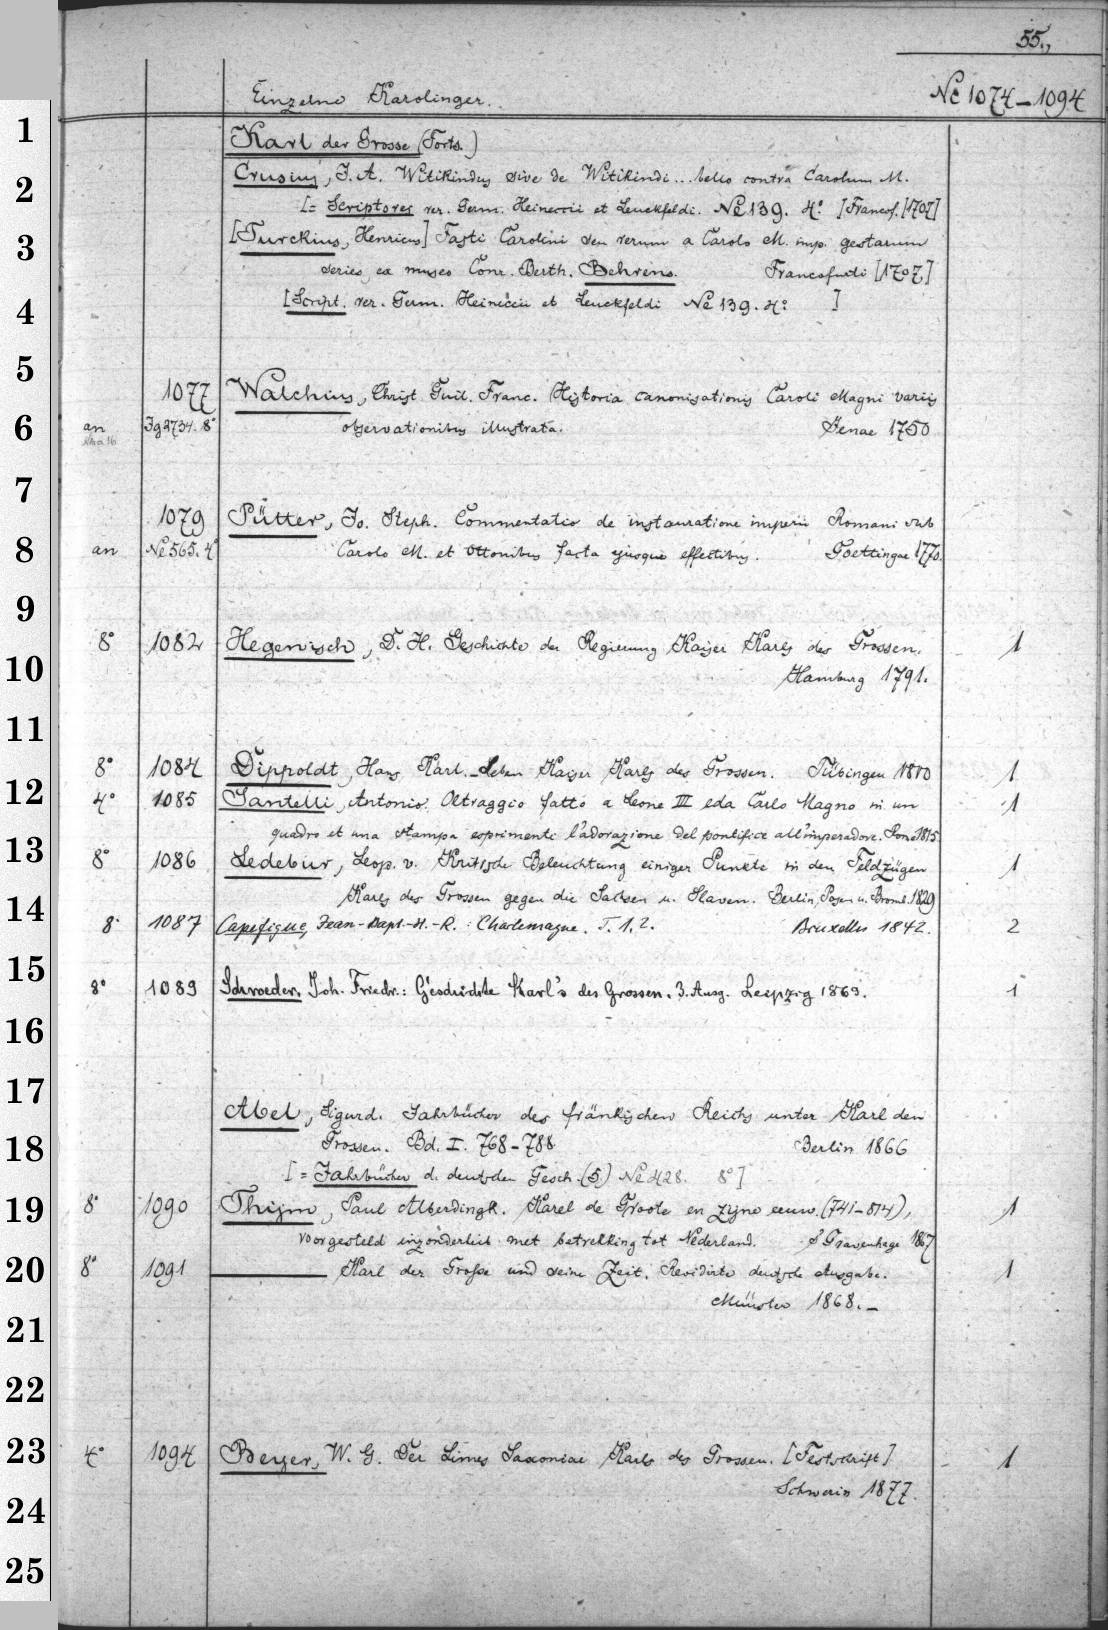 55.,
Einzelne Karolinger. Ne 1074-1094
1
Karl der Grosse (Forts.)
Crusius, J. A. Witikindus sive de Witikindi... bello contra Carolum M.
2
[= Scriptores rer. Germ. Heineccii et Leuckfeldi. Ne 139. 4° [Francof. [1707]
3
[Turckius, Henricus] Fasti Carolini seu rerum a Carolo M. imp. gestarum
series, ex museo Conr. Berth. Behrens. Francofurti [1707]
4
[Script. rer. Germ. Heineccii et Leuckfeldi Ne 139. 4° ]
5
1077 Walchius, Christ. Guil. Franc. Historia canonisationis Caroli Magni variis
6
an Jg 2734. 8° observationibus illustrata. Jenae 1750
7
1079 Pütter, Jo. Steph. Commentatio de instauratione imperii Romani sub
8
an Ne 565. 4° Carolo M. et Ottonibus facta ejusque effectibus. Goettingae 1770.
9
8° 1082 Hegewisch, D. H. Geschichte der Regierung Kaiser Karls des Grossen. 1
10
Hamburg 1791.
11
8° 1084 Dippoldt, Hans Karl. Leben Kaiser Karls des Grossen. Tübingen 1810 1
12
4° 1085 Santelli, Antonio. Oltraggio fatto a Leone III e da Carlo Magno in un 1
quadro et una stampa esprimenti l'adorazione del pontifice all'imperadore. Roma 1815.
13
8° 1086 Ledebur, Leop. v. Kritische Beleuchtung einiger Punkte in den Feldzügen 1
Karls des Grossen gegen die Sachsen u. Slaven. Berlin, Posen u. Bromb. 1829
14
8° 1087 Capefigue, Jean-Bapt.-H.-R.: Charlemagne. T. 1. 2. Bruxelles 1842. 2
15
8° 1089 Schroeder, Joh. Friedr.: Geschichte Karl's des Grossen. 3. Ausg. Leipzig 1869. 1
16
17
Abel, Sigurd. Jahrbücher des fränkischen Reichs unter Karl dem
18
Grossen. Bd. I. 768-788 Berlin 1866
[= Jahrbücher d. deutschen Gesch. (5.) Ne 428. 8°]
19
8° 1090 Thijm, Paul Alberdingk. Karel de Groote en zijne eeuw. (741-814), 1
voorgesteld inzonderheit met betrekking tot Nederland. s'Gravenhage 1867
20
8° 1091 ——— Karl der Große und seine Zeit. Revidirte deutsche Ausgabe. 1
Münster 1868.-
21
22
23
4° 1094 Beyer, W. G. Der Limes Saxoniae Karls des Grossen. [Festschrift] 1
Schwerin 1877.
24
25